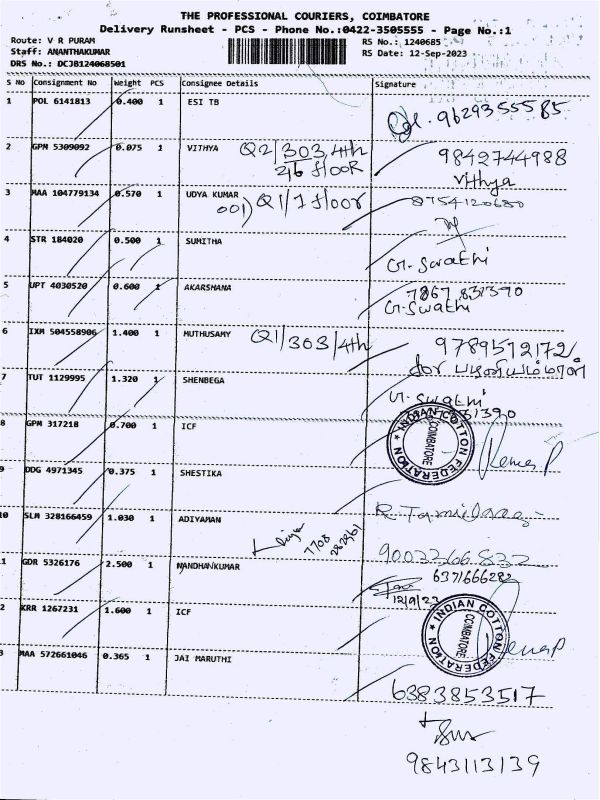 THE PROFESSIONAL COURIERS, COIMBATORE
Delivery Runsheet - PCS - Phone No.:0422-3505555 - Page No.:1
Route: V R PURAM
Staff: ANANTHAKUMAR
DRS No.: DCJB124068501
RS No.: 1240685
RS Date: 12-Sep-2023
S No Consignment No Weight PCS Consignee Details Signature
1 POL 6141813 0.400 1 ESI TB 9629355585
2 GPM 5309092 0.075 1 VITHYA Q2/303 4th floor 9842744988
Vithya
3 MAA 104779134 0.570 1 UDYA KUMAR 001) Q1/1 floor 8754120680
4 STR 184020 0.500 1 SUMITHA G. Swathi
7867 831390
5 UPT 4030520 0.600 1 AKARSHANA G. Swathi
6 IXM 504558906 1.400 1 MUTHUSAMY Q1/303/4th 9789572172/
for
7 TUT 1129995 1.320 1 SHENBEGA G. Swathi
8 GPM 317218 0.700 1 ICF
INDIAN COTTON FEDERATION
COIMBATORE
9 DDG 4971345 0.375 1 SHESTIKA
10 SLM 328166459 1.030 1 ADIYAMAN 7708
1 GDR 5326176 2.500 1 NANDHANKUMAR 6371666282
12/9/23
2 KRR 1267231 1.600 1 ICF
INDIAN COTTON FEDERATION
COIMBATORE
3 MAA 572661046 0.365 1 JAI MARUTHI
6383853517
9843113139